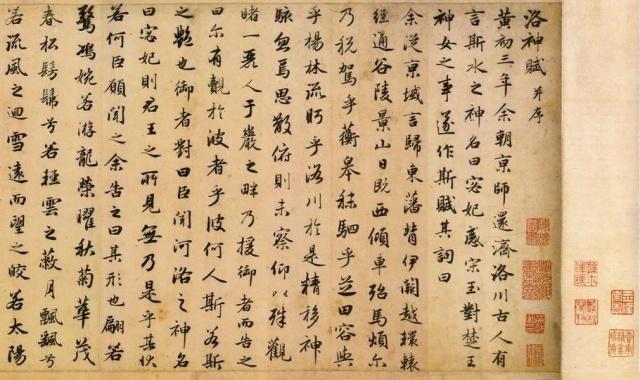 洛神賦 并序
黃初三年余朝京師還濟洛川古人有
言斯水之神名曰宓妃感宋玉對楚王
神女之事遂作斯賦其詞曰
余從京域言歸東藩背伊闕越轘轅
經通谷陵景山日既西傾車殆馬煩尔
乃税駕乎蘅皋秣駟乎芝田容與
乎楊林流眄乎洛川於是精移神
駭忽焉思散俯則未察仰以殊觀
睹一麗人于巖之畔乃援御者而告之
曰尔有覿於彼者乎彼何人斯若斯
之豔也御者對曰臣聞河洛之神名
曰宓妃則君王之所見無乃是乎其狀
若何臣願聞之余告之曰其形也翩若
驚鴻婉若游龍榮曜秋菊華茂
春松髣髴兮若輕雲之蔽月飄飄兮
若流風之迴雪遠而望之皎若太陽